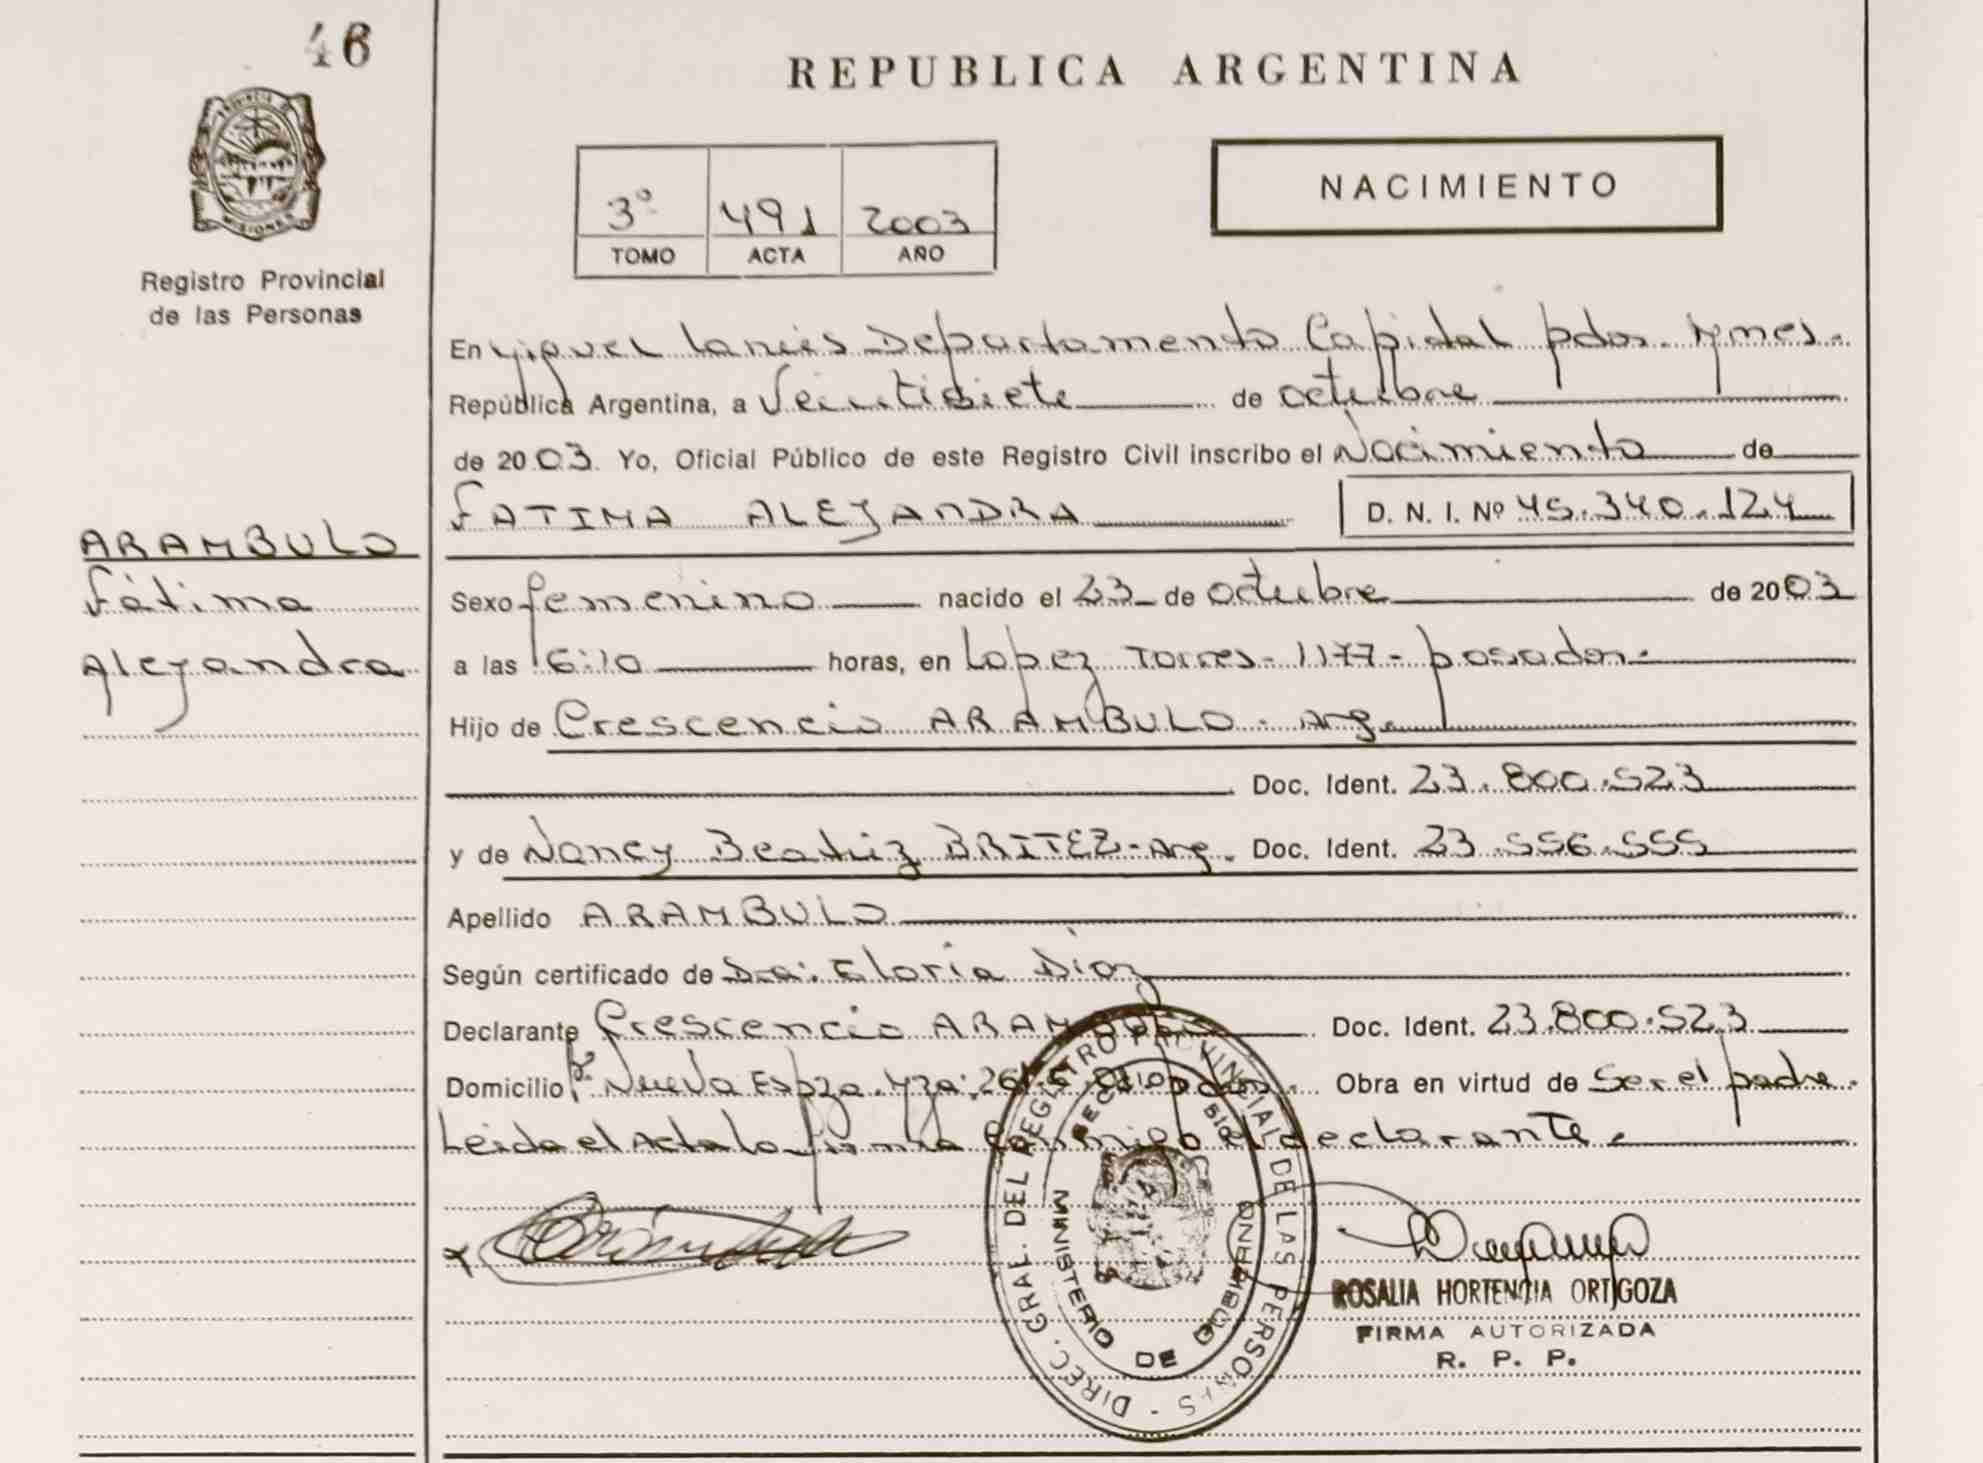 46
REPUBLICA ARGENTINA
PROVINCIA DE MISIONES
Registro Provincial
de las Personas
3º 491 2003
TOMO ACTA AÑO
NACIMIENTO
En Miguel Lanús Departamento Capital pdas. Mnes.
República Argentina, a Veintisiete de octubre
de 2003. Yo, Oficial Público de este Registro Civil inscribo el Nacimiento de
FATIMA ALEJANDRA D. N. I. Nº 45.340.124
ARAMBULO
Fátima
Alejandra
Sexo femenino nacido el 23 de octubre de 2003
a las 16:10 horas, en Lopez Torres - 1177 - posadas.
Hijo de Crescencio ARAMBULO - Arg.
Doc. Ident. 23.800.523
y de Nancy Beatriz BRITEZ - Arg. Doc. Ident. 23.556.555
Apellido ARAMBULO
Según certificado de Dra: Gloria Diaz
Declarante Crescencio ARAMBULO Doc. Ident. 23.800.523
Domicilio Nueva Espza. Mza: Obra en virtud de Ser el padre.
Leida el Acta la firma Conmigo el declarante.
DIREC. GRAL. DEL REGISTRO PROVINCIAL DE LAS PERSONAS
MINISTERIO DE GOBIERNO
ROSALIA HORTENCIA ORTIGOZA
FIRMA AUTORIZADA
R. P. P.